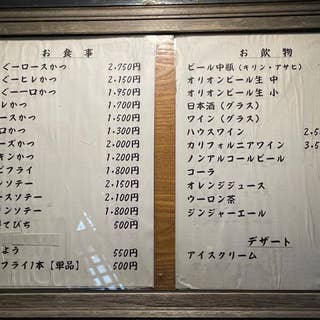 お食事
ぐーロースかつ 2,750円
ぐーヒレかつ 2,150円
ぐー一口かつ 1,950円
レかつ 1,700円
ースかつ 1,500円
ロかつ 1,300円
ーズかつ 2,000円
キンかつ 1,200円
ビフライ 1,800円
ンソテー 2,150円
ースソテー 2,100円
ンソテー 1,800円
てびち 500円
よう 550円
フライ1本【単品】 500円
お飲物
ビール中瓶(キリン・アサヒ)
オリオンビール生 中
オリオンビール生 小
日本酒(グラス)
ワイン(グラス)
ハウスワイン
カリフォルニアワイン
ノンアルコールビール
コーラ
オレンジジュース
ウーロン茶
ジンジャーエール
デザート
アイスクリーム